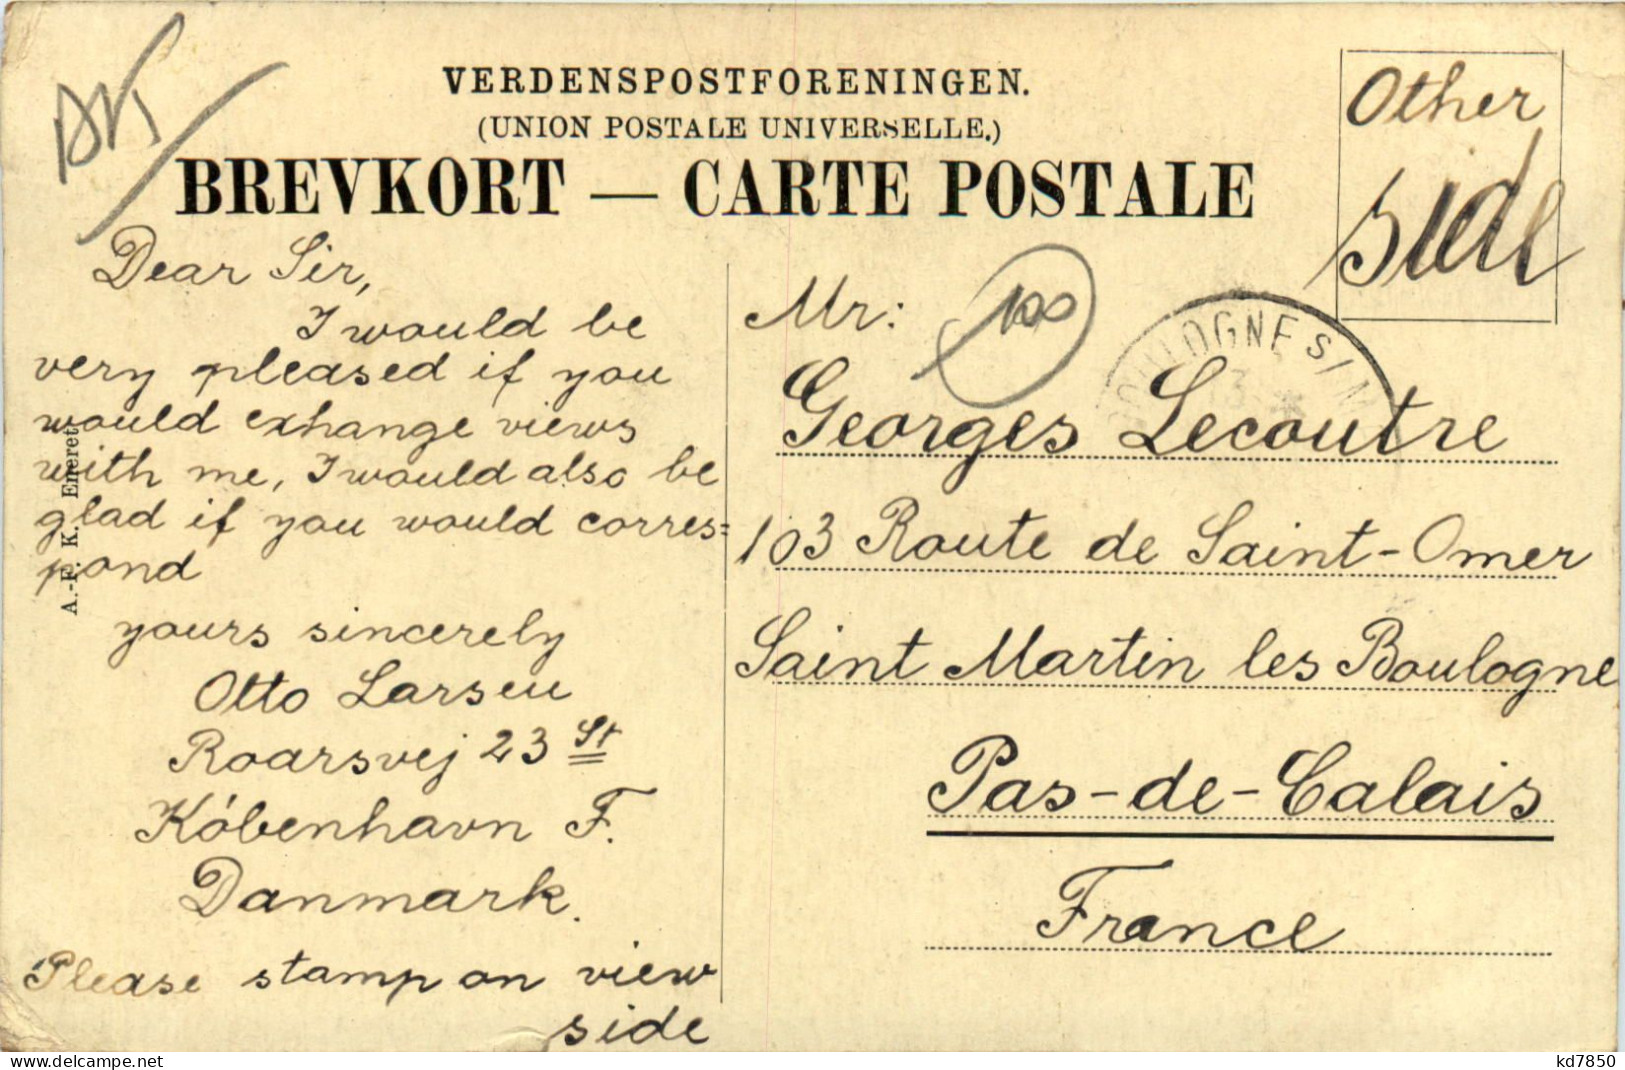 VERDENSPOSTFORENINGEN.
(UNION POSTALE UNIVERSELLE.)
BREVKORT — CARTE POSTALE
Other
side
Dear Sir,
I would be
very pleased if you
would exhange views
with me, I would also be
glad if you would corres=
pond
yours sincerely
Otto Larsen
Roarsvej 23 St
Kóbenhavn F.
Danmark.
Please stamp on view
side
A.-F. K. Eneret
Mr:
100
BOULOGNE S/M
13
Georges Lecoutre
103 Route de Saint-Omer
Saint Martin les Boulogne
Pas-de-Calais
France
delcampe.net
kd7850